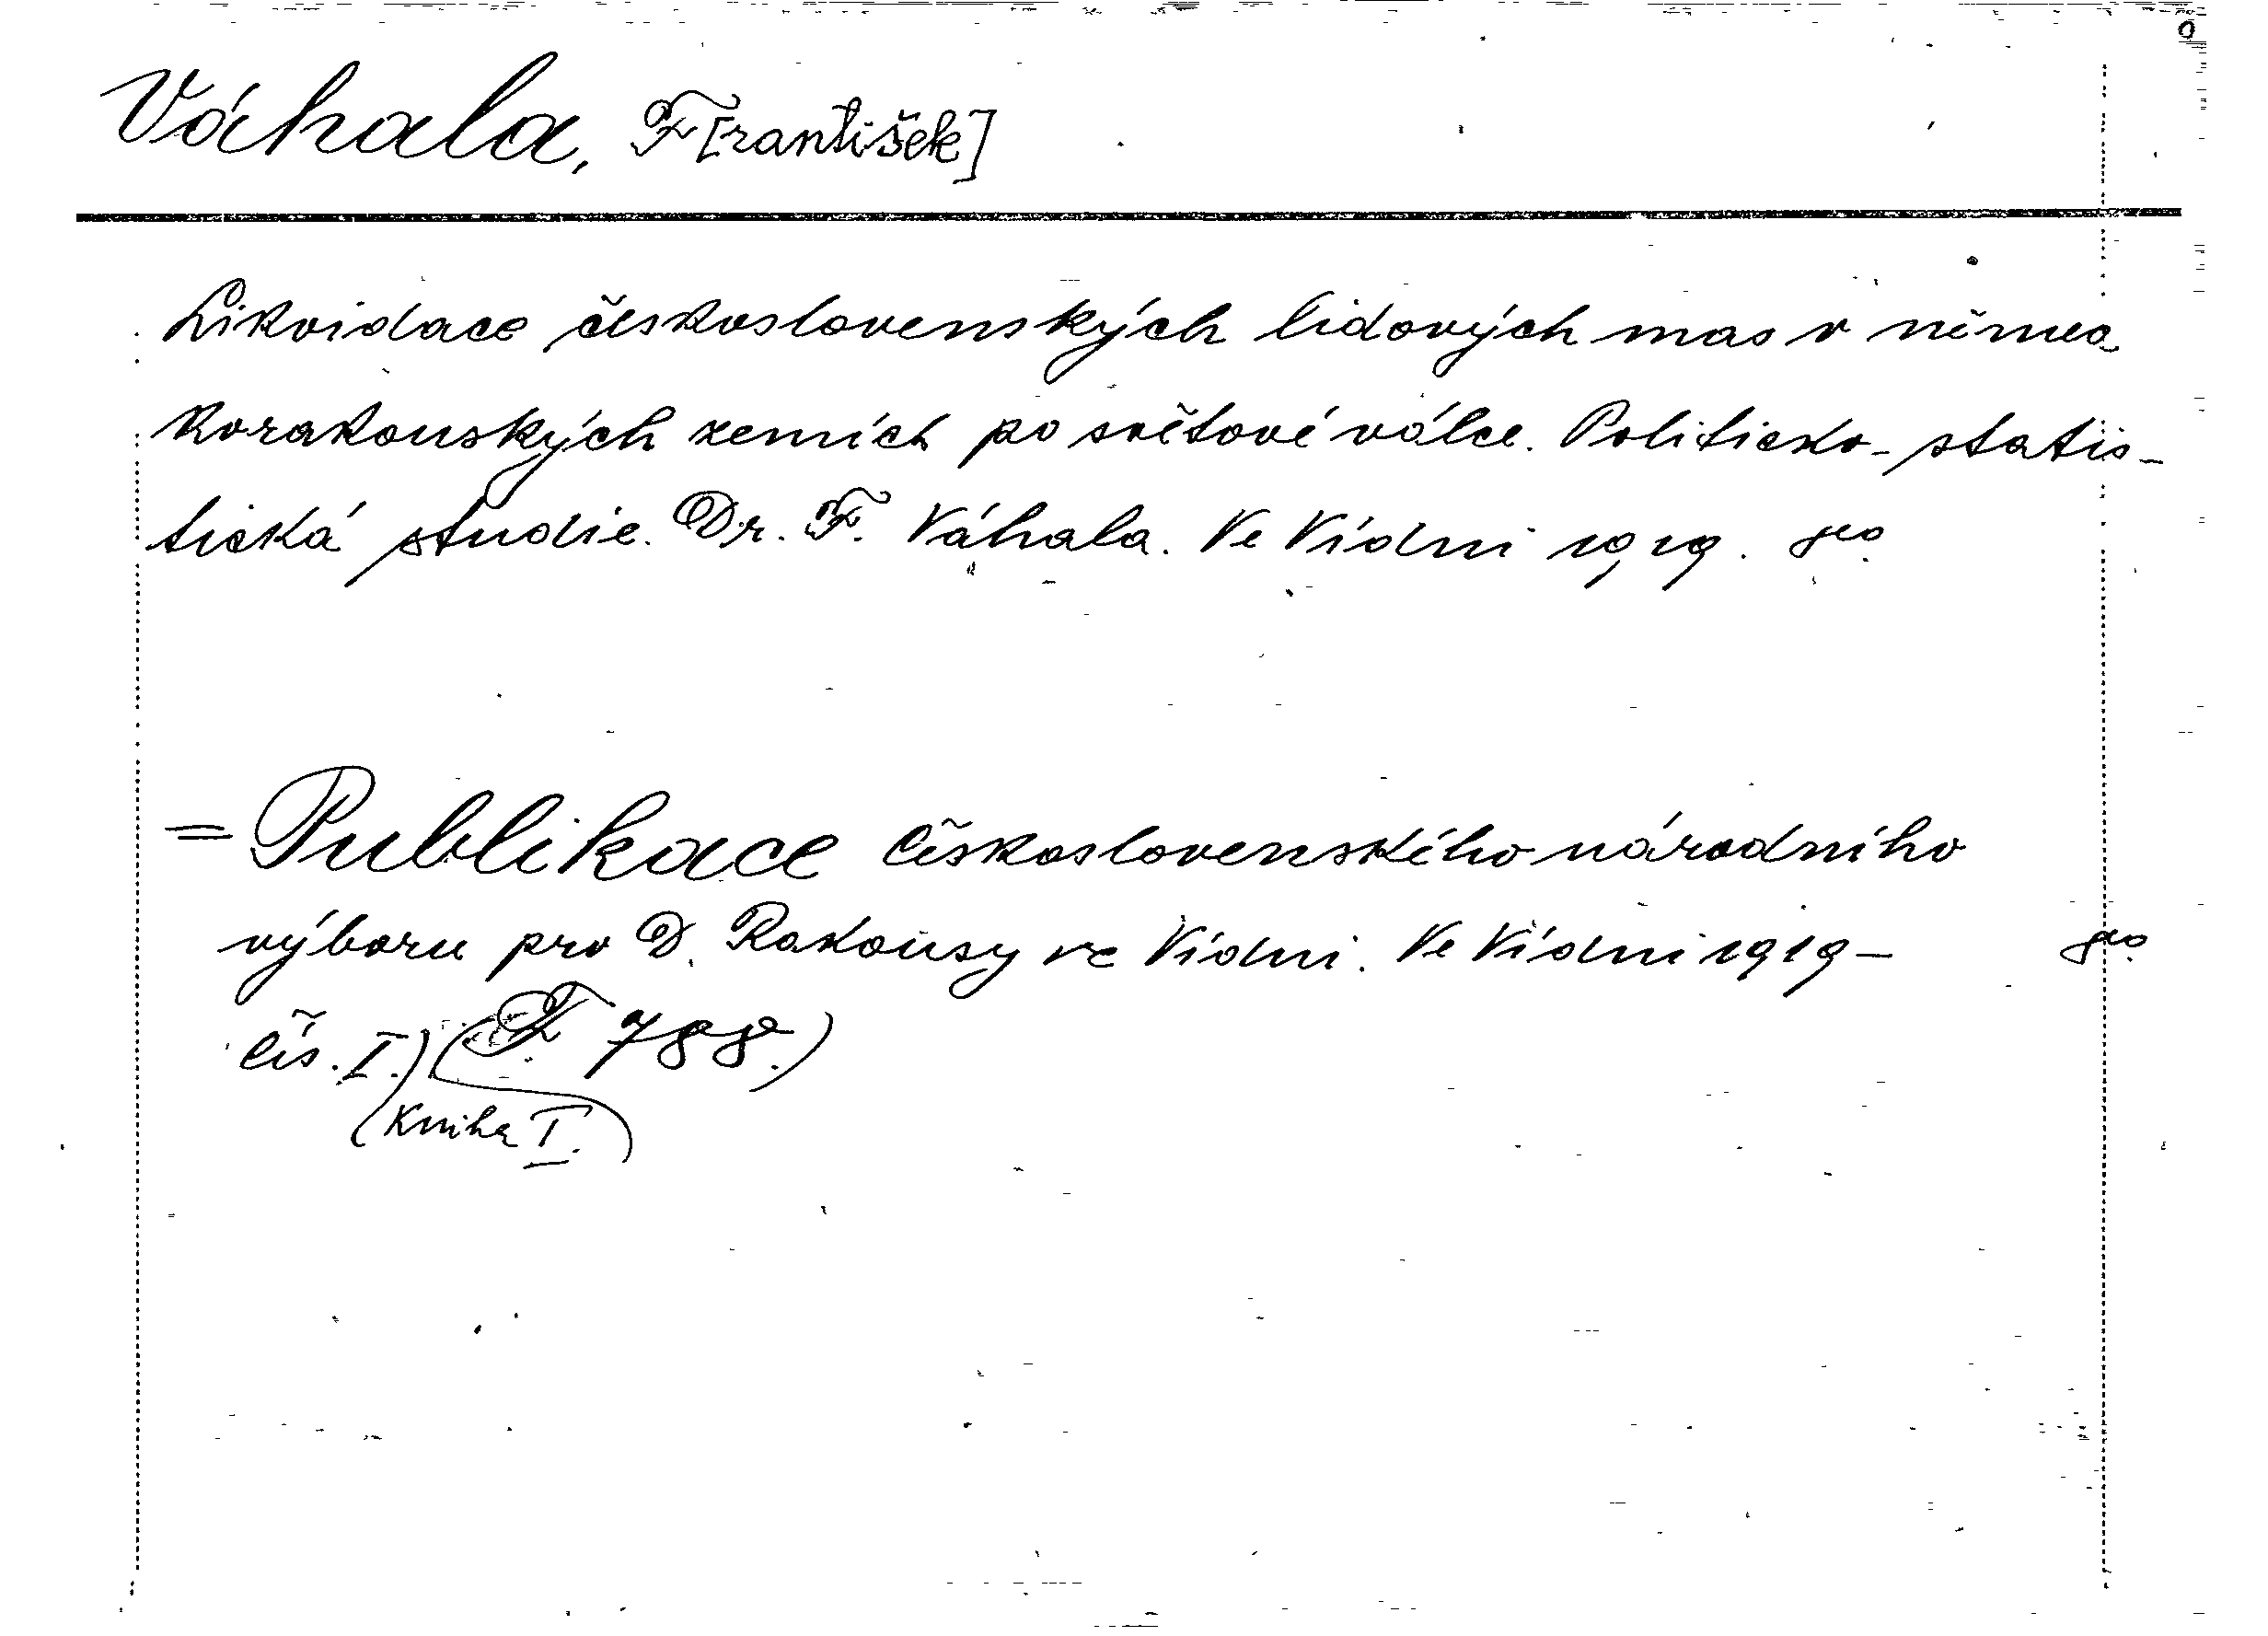 Váhala, F[rantišek]
Likvidace československých lidových mas v němec
korakouských zemích po světové válce. Politicko-statis-
tická studie. Dr. F. Váhala. Ve Vídni 1919. 8⁰.
= Publikace československého národního
výboru pro D. Rakousy ve Vídni. Ve Vídni 1919 – 8⁰.
Čís. I.) (F 788.)
(Kniha I.)